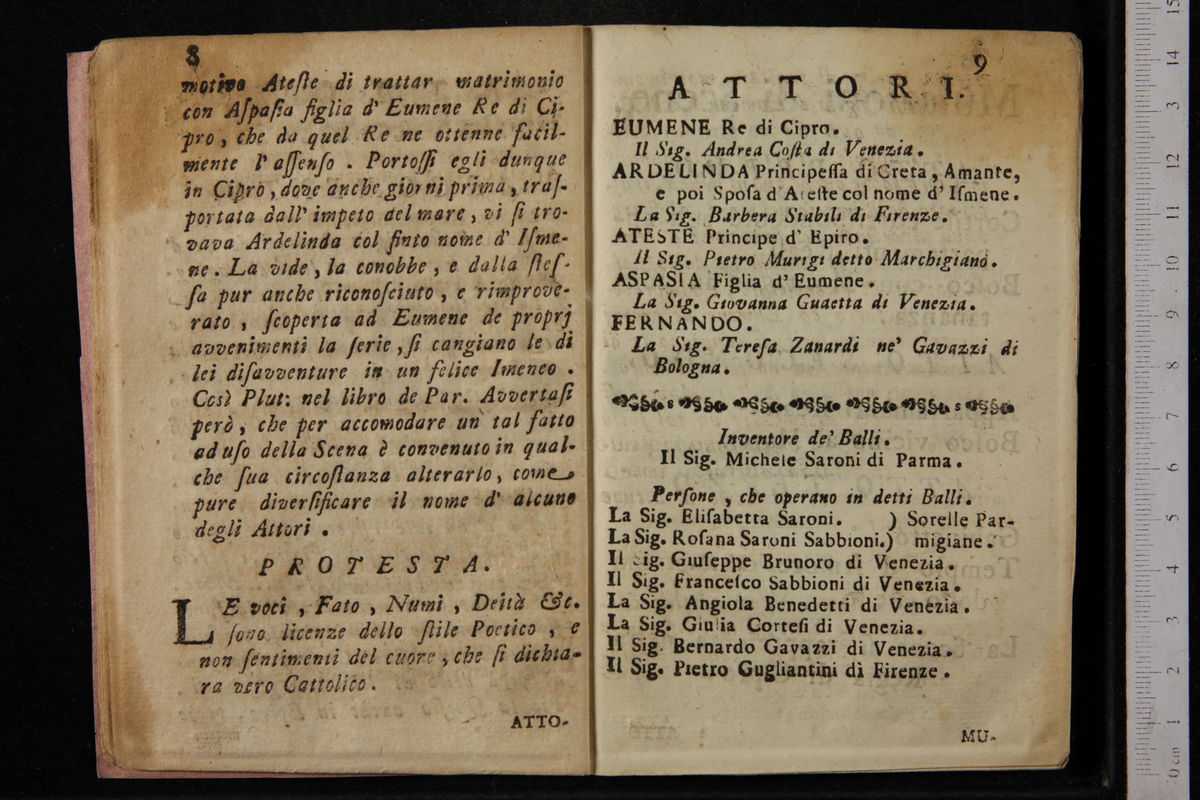 8
motivo Ateſte di trattar matrimonio
con Aſpaſia figlia d' Eumene Re di Ci-
pro, che da quel Re ne ottenne facil-
mente l' aſſenſo. Portoſſi egli dunque
in Cipro, dove anche giorni prima, traſ-
portata dall' impeto del mare, vi ſi tro-
vava Ardelinda col finto nome d' Iſme-
ne. La vide, la conobbe, e dalla ſteſ-
ſa pur anche riconoſciuto, e rimprove-
rato, ſcoperta ad Eumene de proprj
avvenimenti la ſerie, ſi cangiano le di
lei diſavventure in un felice Imeneo.
Così Plut: nel libro de Par. Avvertaſi
però, che per accomodare un tal fatto
ad uſo della Scena è convenuto in qual-
che ſua circoſtanza alterarlo, come
pure diverſificare il nome d' alcuno
degli Attori.
PROTESTA.
LE voci, Fato, Numi, Deità &c.
ſono licenze dello ſtile Poetico, e
non ſentimenti del cuore, che ſi dichia-
ra vero Cattolico.
ATTO-
9
ATTORI.
EUMENE Re di Cipro.
Il Sig. Andrea Coſta di Venezia.
ARDELINDA Principeſſa di Creta, Amante,
e poi Spoſa d' Ateſte col nome d' Iſmene.
La Sig. Barbera Stabili di Firenze.
ATESTE Principe d' Epiro.
Il Sig. Pietro Murigi detto Marchigiano.
ASPASIA Figlia d' Eumene.
La Sig. Giovanna Guaetta di Venezia.
FERNANDO.
La Sig. Tereſa Zanardi ne' Gavazzi di
Bologna.
Inventore de' Balli.
Il Sig. Michele Saroni di Parma.
Perſone, che operano in detti Balli.
La Sig. Eliſabetta Saroni. ) Sorelle Par-
La Sig. Roſana Saroni Sabbioni.) migiane.
Il Sig. Giuſeppe Brunoro di Venezia.
Il Sig. Franceſco Sabbioni di Venezia.
La Sig. Angiola Benedetti di Venezia.
La Sig. Giulia Corteſi di Venezia.
Il Sig. Bernardo Gavazzi di Venezia.
Il Sig. Pietro Gugliantini di Firenze.
MU-
0 cm 1 2 3 4 5 6 7 8 9 10 11 12 13 14 15